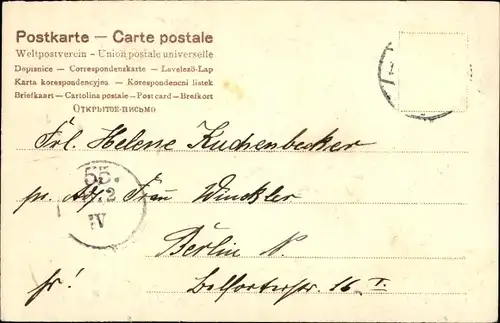 Postkarte — Carte postale
Weltpostverein – Union postale universelle
Dopisnice — Correspondenskarte — Levelező-Lap
Karta korespondencyjna — Korespondenčni listek
Briefkaart — Cartolina postale — Post card — Brefkort
Открытое-письмо
Frl. Helene Kuchenbecker
55.
pr. Adr. Frau Winckler
2
IV
Berlin N.
fr! Belforterstr. 16 I.